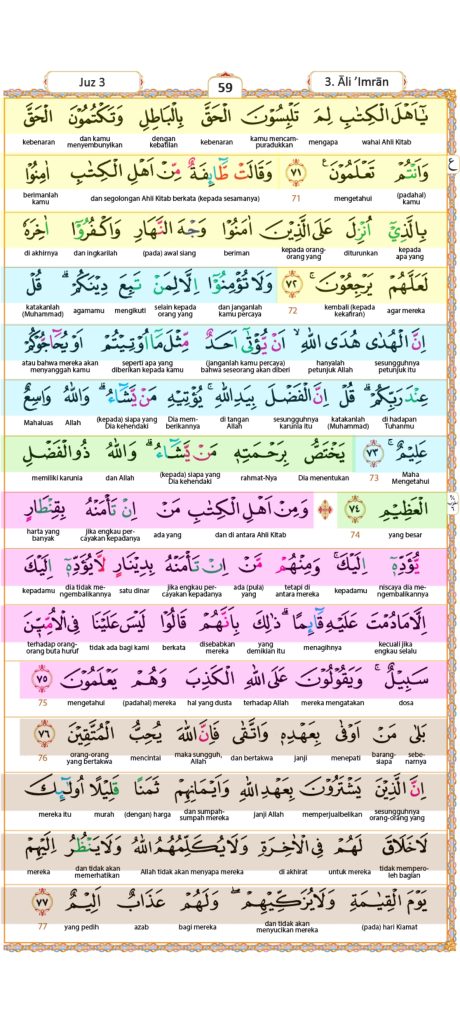 Juz 3
59
3. Āli ‘Imrān
يٰٓاَهْلَ الْكِتٰبِ لِمَ تَلْبِسُوْنَ الْحَقَّ بِالْبَاطِلِ وَتَكْتُمُوْنَ الْحَقَّ
wahai Ahli Kitab mengapa kamu mencampuradukkan kebenaran dengan kebatilan dan kamu menyembunyikan kebenaran
وَاَنْتُمْ تَعْلَمُوْنَ ࣖ ٧١ وَقَالَتْ طَّاۤىِٕفَةٌ مِّنْ اَهْلِ الْكِتٰبِ اٰمِنُوْا
(padahal) kamu mengetahui 71 dan segolongan Ahli Kitab berkata (kepada sesamanya) berimanlah kamu
ع
بِالَّذِيْٓ اُنْزِلَ عَلَى الَّذِيْنَ اٰمَنُوْا وَجْهَ النَّهَارِ وَاكْفُرُوْٓا اٰخِرَهٗ
kepada apa yang diturunkan kepada orang-orang yang beriman (pada) awal siang dan ingkarilah di akhirnya
لَعَلَّهُمْ يَرْجِعُوْنَ ۚ ٧٢ وَلَا تُؤْمِنُوْٓا اِلَّا لِمَنْ تَبِعَ دِيْنَكُمْ ۗ قُلْ
agar mereka kembali (kepada kekafiran) 72 dan janganlah kamu percaya selain kepada orang yang mengikuti agamamu katakanlah (Muhammad)
اِنَّ الْهُدٰى هُدَى اللّٰهِ ۙ اَنْ يُّؤْتٰىٓ اَحَدٌ مِّثْلَ مَآ اُوْتِيْتُمْ اَوْ يُحَاۤجُّوْكُمْ
sesungguhnya petunjuk itu hanyalah petunjuk Allah (janganlah kamu percaya) bahwa seseorang akan diberi seperti apa yang diberikan kepada kamu atau bahwa mereka akan menyanggah kamu
عِنْدَ رَبِّكُمْ ۗ قُلْ اِنَّ الْفَضْلَ بِيَدِ اللّٰهِ ۚ يُؤْتِيْهِ مَنْ يَّشَاۤءُ ۗ وَاللّٰهُ وَاسِعٌ
di hadapan Tuhanmu katakanlah (Muhammad) sesungguhnya karunia itu di tangan Allah Dia memberikannya (kepada) siapa yang Dia kehendaki Allah Mahaluas
عَلِيْمٌ ۚ ٧٣ يَخْتَصُّ بِرَحْمَتِهٖ مَنْ يَّشَاۤءُ ۗ وَاللّٰهُ ذُو الْفَضْلِ
Maha Mengetahui 73 Dia menentukan rahmat-Nya (kepada) siapa yang Dia kehendaki dan Allah memiliki karunia
الْعَظِيْمِ ٧٤ ۞ وَمِنْ اَهْلِ الْكِتٰبِ مَنْ اِنْ تَأْمَنْهُ بِقِنْطَارٍ
yang besar 74 dan di antara Ahli Kitab ada yang jika engkau percayakan kepadanya harta yang banyak
يُّؤَدِّهٖٓ اِلَيْكَ ۚ وَمِنْهُمْ مَّنْ اِنْ تَأْمَنْهُ بِدِيْنَارٍ لَّا يُؤَدِّهٖٓ اِلَيْكَ
niscaya dia mengembalikannya kepadamu tetapi di antara mereka ada (pula) yang jika engkau percayakan kepadanya satu dinar dia tidak mengembalikannya kepadamu
اِلَّا مَا دُمْتَ عَلَيْهِ قَاۤىِٕمًا ۗ ذٰلِكَ بِاَنَّهُمْ قَالُوْا لَيْسَ عَلَيْنَا فِى الْاُمِّيّٖنَ
kecuali jika engkau selalu menagihnya yang demikian itu disebabkan mereka berkata tidak ada bagi kami terhadap orang-orang buta huruf
سَبِيْلٌ ۚ وَيَقُوْلُوْنَ عَلَى اللّٰهِ الْكَذِبَ وَهُمْ يَعْلَمُوْنَ ٧٥
dosa mereka mengatakan terhadap Allah hal yang dusta (padahal) mereka mengetahui 75
بَلٰى مَنْ اَوْفٰى بِعَهْدِهٖ وَاتَّقٰى فَاِنَّ اللّٰهَ يُحِبُّ الْمُتَّقِيْنَ ٧٦
sebenarnya barangsiapa menepati janji dan bertakwa maka sungguh, Allah mencintai orang-orang yang bertakwa 76
اِنَّ الَّذِيْنَ يَشْتَرُوْنَ بِعَهْدِ اللّٰهِ وَاَيْمَانِهِمْ ثَمَنًا قَلِيْلًا اُولٰۤىِٕكَ
sesungguhnya orang-orang yang memperjualbelikan janji Allah dan sumpah-sumpah mereka (dengan) harga murah mereka itu
لَا خَلَاقَ لَهُمْ فِى الْاٰخِرَةِ وَلَا يُكَلِّمُهُمُ اللّٰهُ وَلَا يَنْظُرُ اِلَيْهِمْ
tidak memperoleh bagian untuk mereka di akhirat Allah tidak akan menyapa mereka dan tidak akan memerhatikan mereka
يَوْمَ الْقِيٰمَةِ وَلَا يُزَكِّيْهِمْ ۖ وَلَهُمْ عَذَابٌ اَلِيْمٌ ٧٧
(pada) hari Kiamat dan tidak akan menyucikan mereka bagi mereka azab yang pedih 77